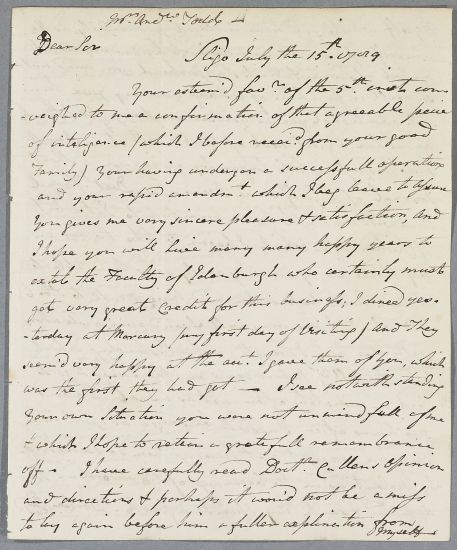 Dear Sir
Sligo July the 15th. 1789
Your esteem'd favr. of the 5th. instt. con
-veighed to me a confirmation of that agreeable peice
of inteligence (which I before receiv'd from your good
Family) Your having undergon a successfull operation
and your rapid amendmt. which I beg leave to asure
You gives me very sincere pleasure & satisfaction, and
I hope you will live many many happy years to
extole the Faculty of Edenburgh who certainly must
get very great Credit for this business; I dined yes-
-terday at (my first day of Visiting) and They
seem'd very happy at the act. I gave them of You, which
was the first they had got — I see notwithstanding
Your own Situation you were not unmindfull of me
& which I hope to retain a gratefull remembrance
off — I have carefully read Doctr. Cullens Opinion
and directions & perhaps it would not be a miss
to lay again before him a fuller explination from
myself